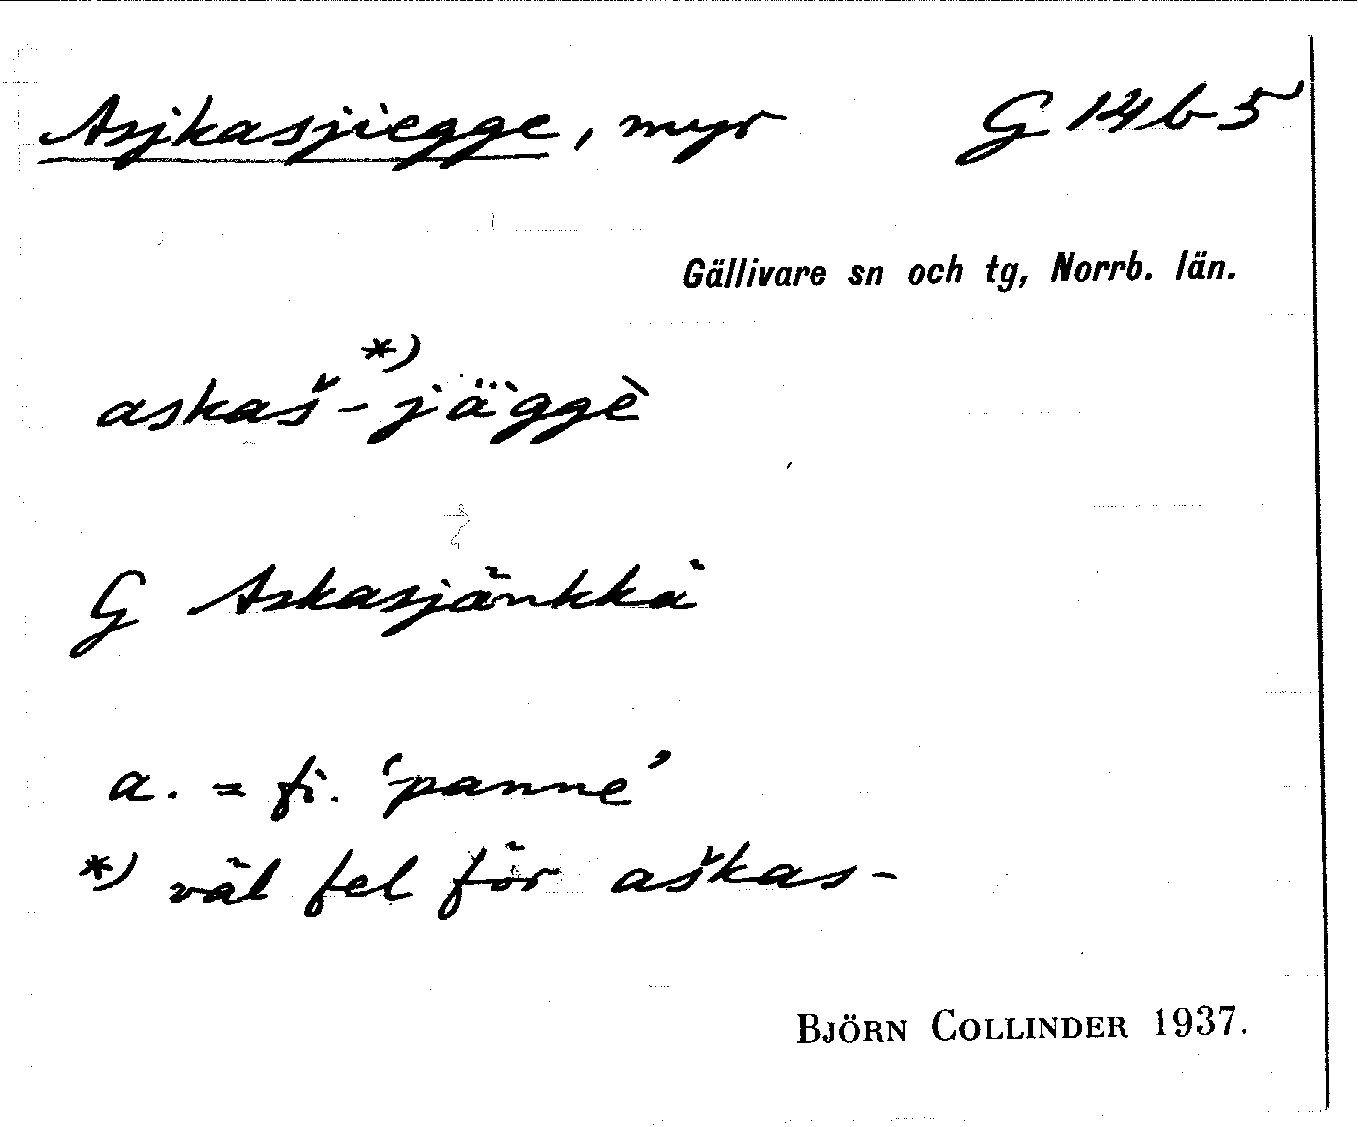 Asjkasjiegge, myr G 14 b 5
Gällivare sn och tg, Norrb. län.
*)
askaš-jäggè
G Askasjänkkä
a. = fi. 'panne'
*) väl fel för aškas-
BJÖRN COLLINDER 1937.